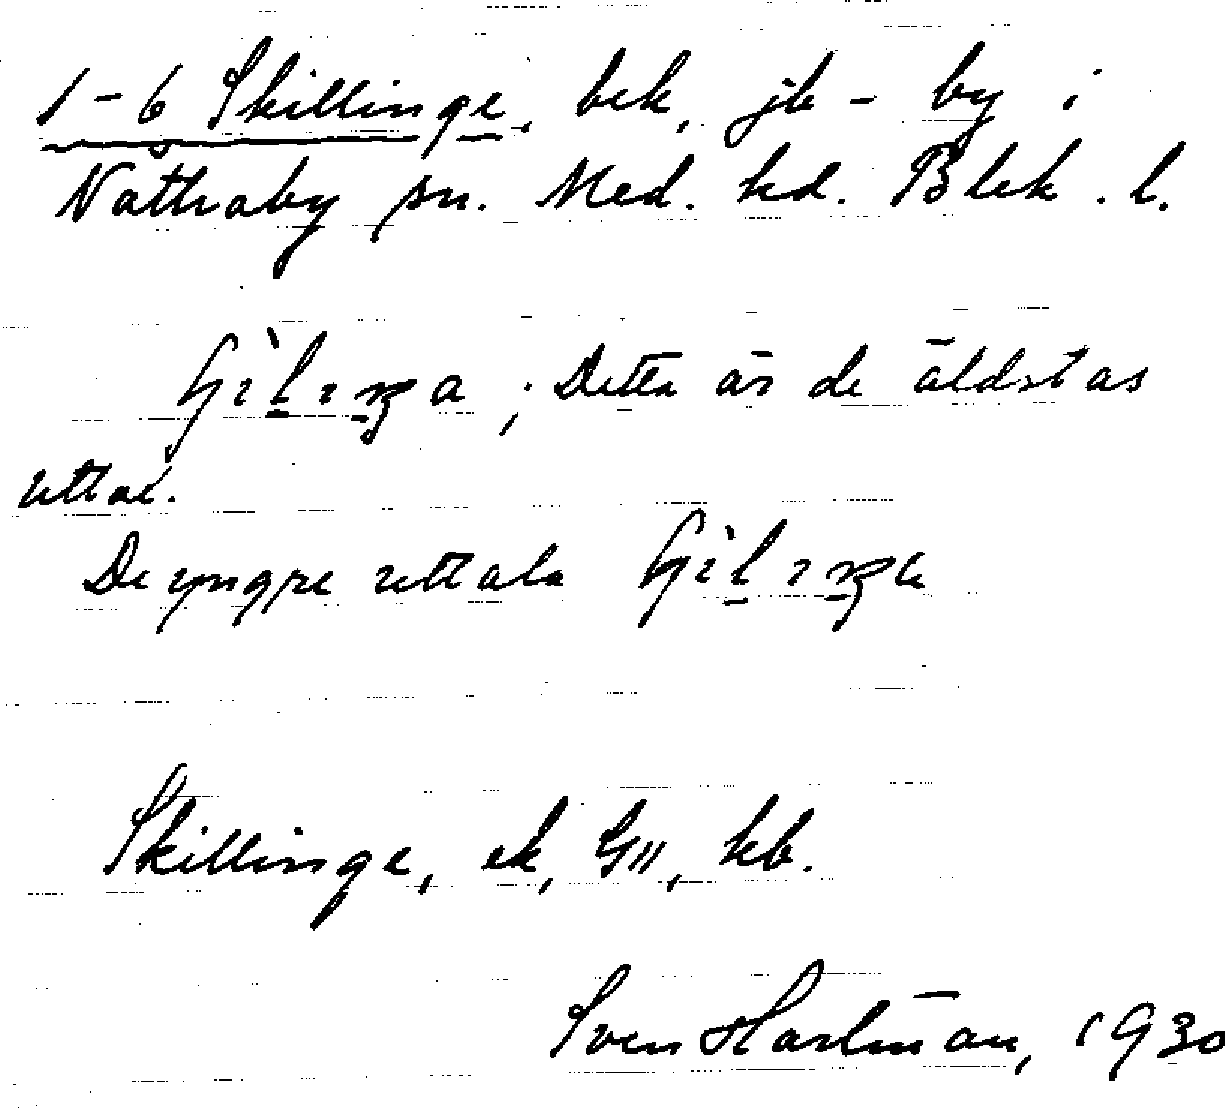 1-6 Skillinge, bek, jb-by i
Nättraby sn. Med. hd. Blek. l.
; Detta är de äldstas
uttal.
De yngre uttala
Skillinge, ek, GII, kb.
Sven Hartman, 1930